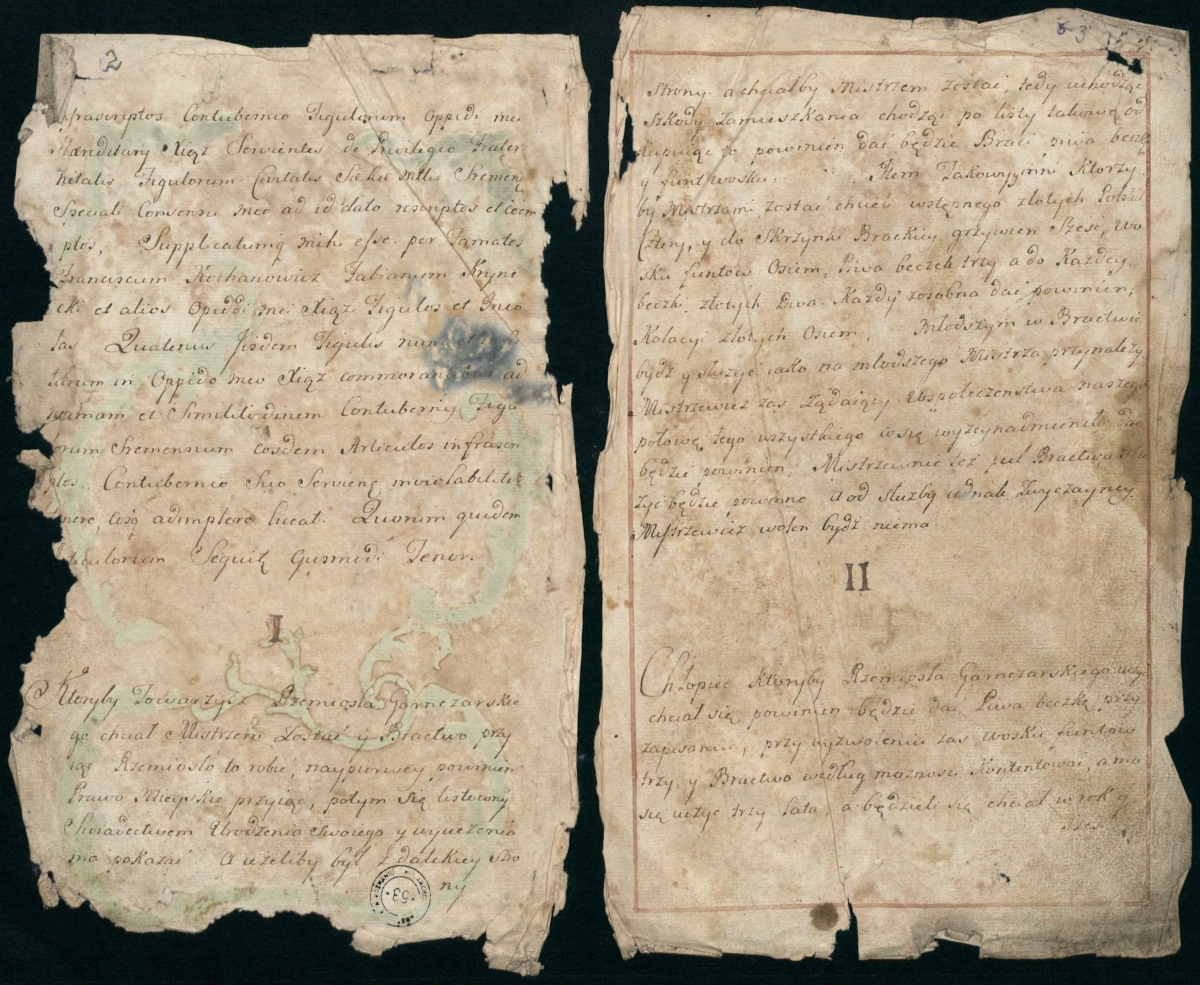 2
frascriptos Contubernio Figulorum Oppidi mei
Hæreditary Xiąż Servientes de Privilegio Frater
nitatis Figulorum Civitatis
Speciali Consensu meo ad id dato rescriptos et
ptos, Supplicatumq mihi esse per Famatos
Franciscum Kochanowicz Fabianum Kryni
cki et alios Opiddi mei Xiąż Figulos et Inco
las Quatenus Jisdem Figulis nunc et
turum in Oppido meo Xiąż commorantibus ad
normam et Similitudinem Contuberny Figu
lorum Sremensium eosdem Articulos infrascri
ptos Contubernio Suo Servienę inviolabiliter
nere, adimplere liceat. Quorum quidem
ticulorum Sequitę Tenor.
I
Ktoryby Towarzysz Rzemiosła Garnczarskie
go chciał Mistrzem Zostać y Bractwo przy
iąc Rzemiosło to robić, naypierwey powinien
Prawo Mieyskie przyiąc, potym się listowny
Swiadectwem Urodzenia Swoiego y wyuczenia
ma pokazać. A ieżeliby był z dalekiey Stro
ny
53
3
Strony a chciałby Mistrzem zostać, tedy uchodząc
Szkody zamieszkania chodząc po listy takową od
kupuiąc to powinien dać będzie Braci piwa beczkę
y funt wosku. Item Takowyż Ktorzy
by Mistrzami zostać chcieli wstępnego złotych Polskich
Cztery, y do Skrzynki Brackiey grzywien Szesc, Wo
sku funtow Osiem, Piwa beczek trzy a do Każdey
beczki złotych Dwa Każdy zosobna dać powinien;
Kolacyi złotych Osiem, Młodszym w Bractwie
bydz y służyc iako na młodszego Mistrza przynależy
Mistrzewicz zas Żądaiący Uspołeczenstwa naszego
połowę tego wszystkiego co się wyzeynadmieniło dac
będzie powinien, Mistrzewnie też puł Bractwa
żyć będzie powinno a od służby iednak Zwyczayney
Mistrzewicz wolen bydź niema.
II
Chłopiec Ktoryby Rzemiosła Garnczarskiego uczyc
chciał się powinien będzie dac Piwa beczkę przy
zapisaniu, przy wyzwoleniu zas wosku funtow
trzy, y Bractwo według możnosci Kontentować, a ma
się uczyc trzy lata, a będzieli się chciał w rok y